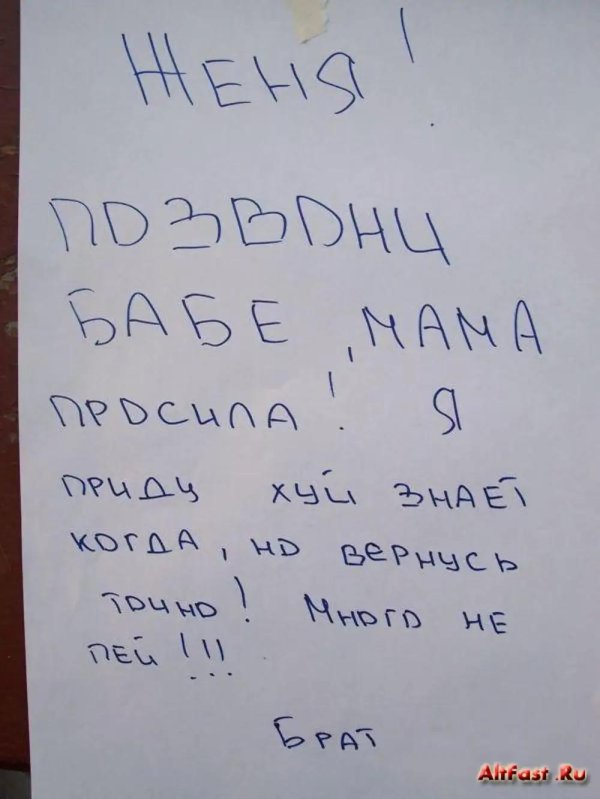 ЖЕНЯ!
ПОЗВОНИ
БАБЕ, МАМА
ПРОСИЛА! Я
ПРИДУ ХУЙ ЗНАЕТ
КОГДА, НО ВЕРНУСЬ
ТОЧНО! МНОГО НЕ
ПЕЙ!!!
БРАТ
AltFast.Ru